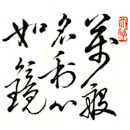 萬般
名利心
如鏡